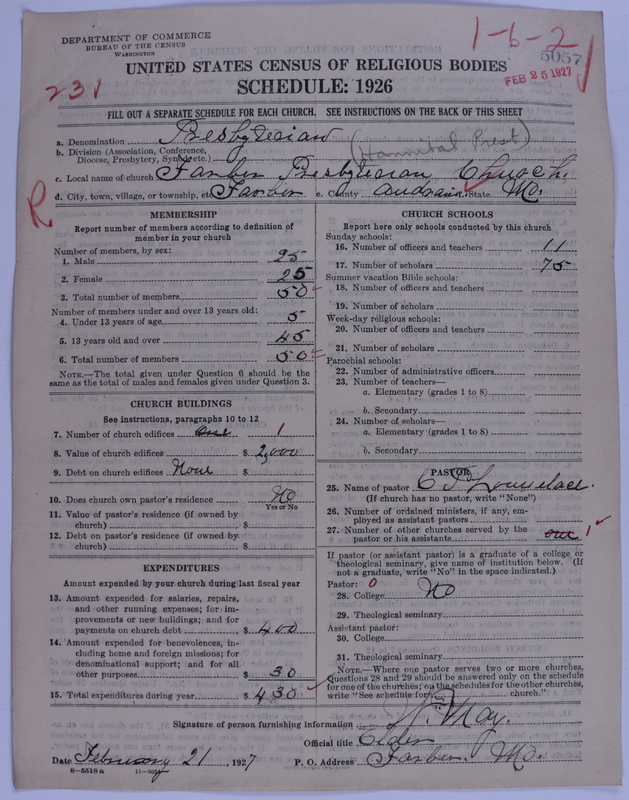 DEPARTMENT OF COMMERCE
BUREAU OF THE CENSUS
WASHINGTON
1-6-2
5057
FEB 25 1927
231
UNITED STATES CENSUS OF RELIGIOUS BODIES
SCHEDULE: 1926
FILL OUT A SEPARATE SCHEDULE FOR EACH CHURCH. SEE INSTRUCTIONS ON THE BACK OF THIS SHEET
a. Denomination Presbyterian
b. Division (Association, Conference, Diocese, Presbytery, Synod, etc.) (Hannibal Prest)
c. Local name of church Farber Presbyterian Church.
d. City, town, village, or township, etc. Farber e. County Audrain State Mo.
R
MEMBERSHIP
Report number of members according to definition of
member in your church
Number of members, by sex:
1. Male 25
2. Female 25
3. Total number of members 50
Number of members under and over 13 years old:
4. Under 13 years of age 5
5. 13 years old and over 45
6. Total number of members 50
NOTE.—The total given under Question 6 should be the
same as the total of males and females given under Question 3.
CHURCH BUILDINGS
See instructions, paragraphs 10 to 12
7. Number of church edifices one 1
8. Value of church edifices $ 2,000
9. Debt on church edifices None $
10. Does church own pastor's residence No
Yes or No
11. Value of pastor's residence (if owned by
church) $
12. Debt on pastor's residence (if owned by
church) $
EXPENDITURES
Amount expended by your church during last fiscal year
13. Amount expended for salaries, repairs,
and other running expenses; for im-
provements or new buildings; and for
payments on church debt $ 400
14. Amount expended for benevolences, in-
cluding home and foreign missions; for
denominational support; and for all
other purposes $ 30
15. Total expenditures during year $ 430
CHURCH SCHOOLS
Report here only schools conducted by this church
Sunday schools:
16. Number of officers and teachers 11
17. Number of scholars 75
Summer vacation Bible schools:
18. Number of officers and teachers
19. Number of scholars
Week-day religious schools:
20. Number of officers and teachers
21. Number of scholars
Parochial schools:
22. Number of administrative officers
23. Number of teachers—
a. Elementary (grades 1 to 8)
b. Secondary
24. Number of scholars—
a. Elementary (grades 1 to 8)
b. Secondary
PASTOR
25. Name of pastor C F Lovelace.
(If church has no pastor, write "None")
26. Number of ordained ministers, if any, em-
ployed as assistant pastors
27. Number of other churches served by the
pastor or his assistants one 1
If pastor (or assistant pastor) is a graduate of a college or
theological seminary, give name of institution below. (If
not a graduate, write "No" in the space indicated.)
Pastor: 0
28. College No
29. Theological seminary
Assistant pastor:
30. College
31. Theological seminary
NOTE.—Where one pastor serves two or more churches,
Questions 28 and 29 should be answered only on the schedule
for one of the churches; on the schedules for the other churches,
write "See schedule for church."
Signature of person furnishing information May.
Official title Elder
Date February 21, 1927 P. O. Address Farber. Mo.
8—5518 a